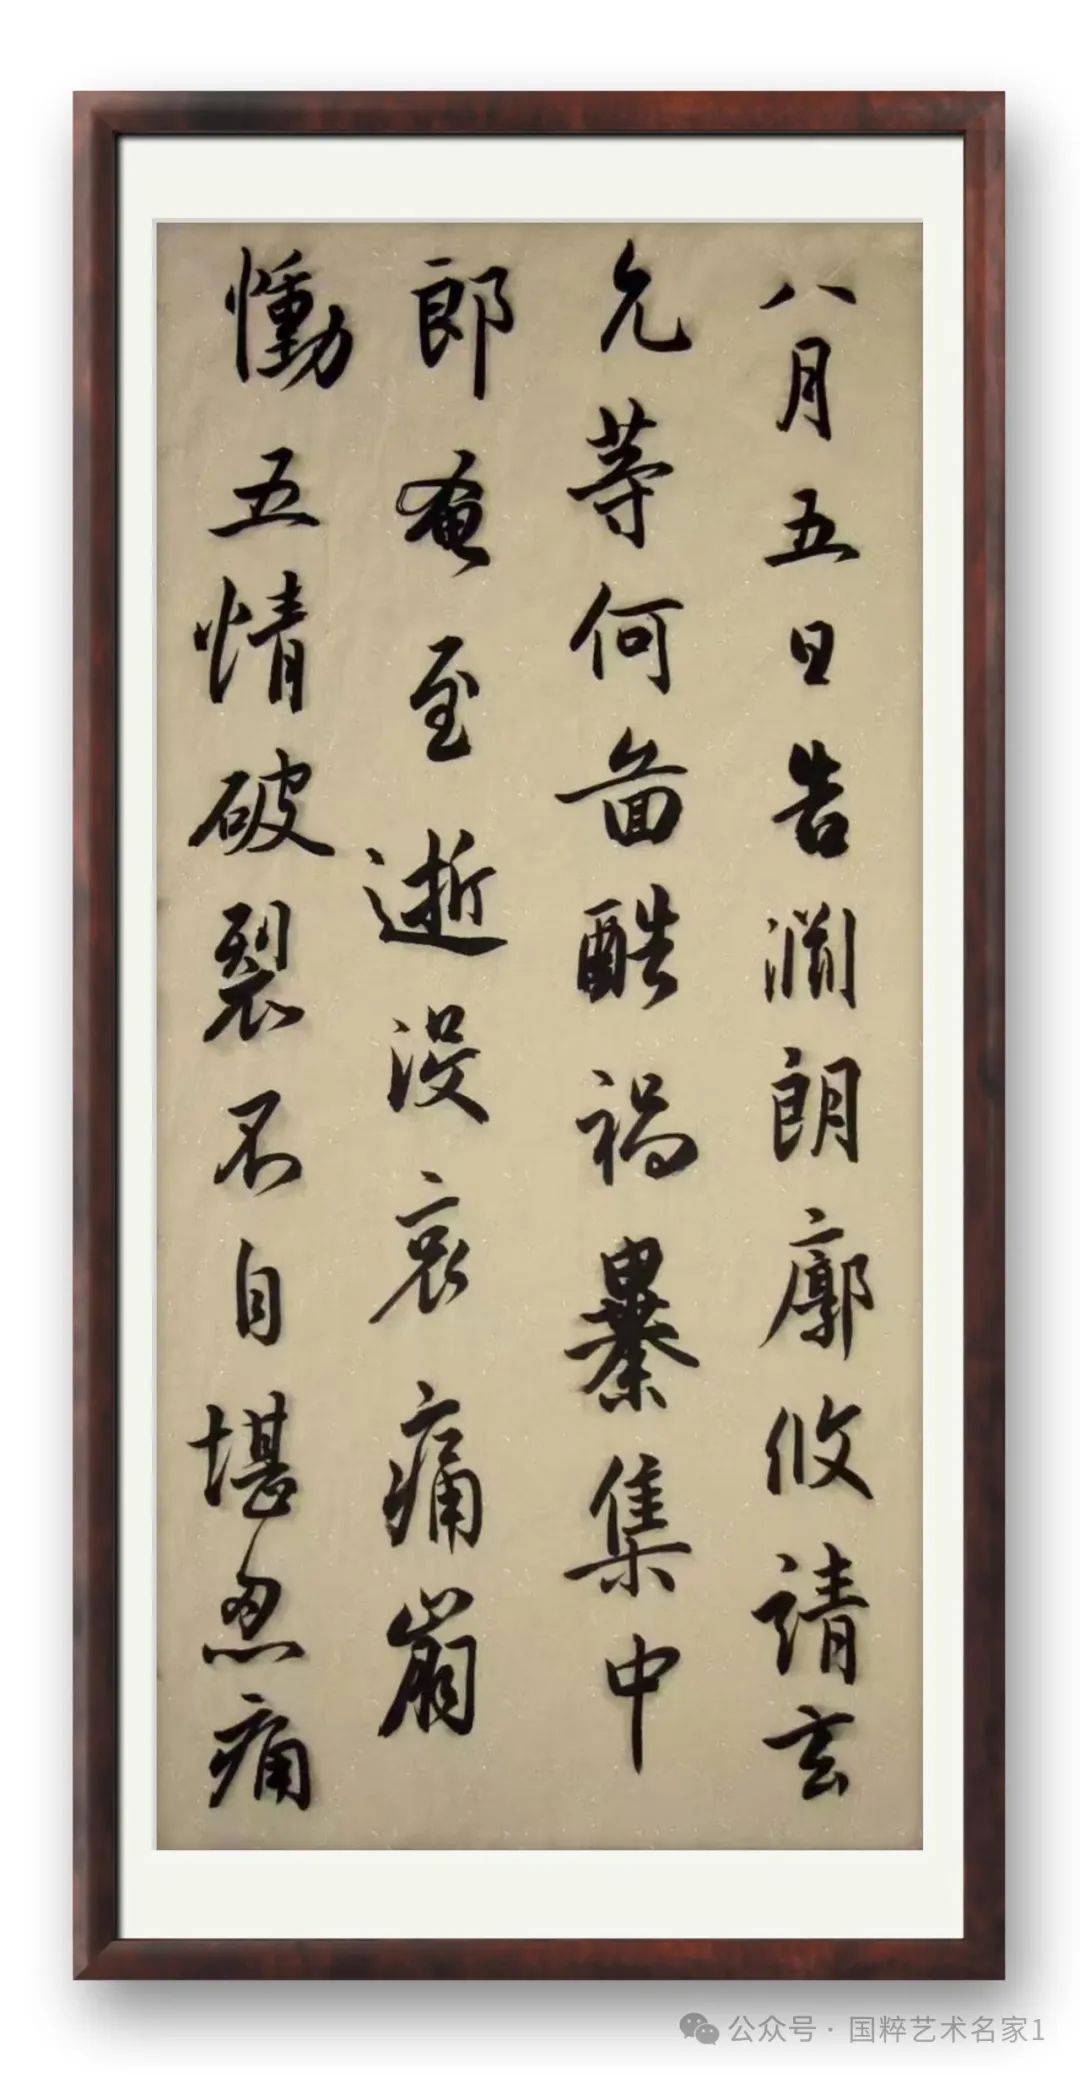 八月五日告渊朗廓攸靖玄
允等何啚酷祸暴集中
郎奄至逝没哀痛崩
恸五情破裂不自堪忍痛
公众号·国粹艺术名家1